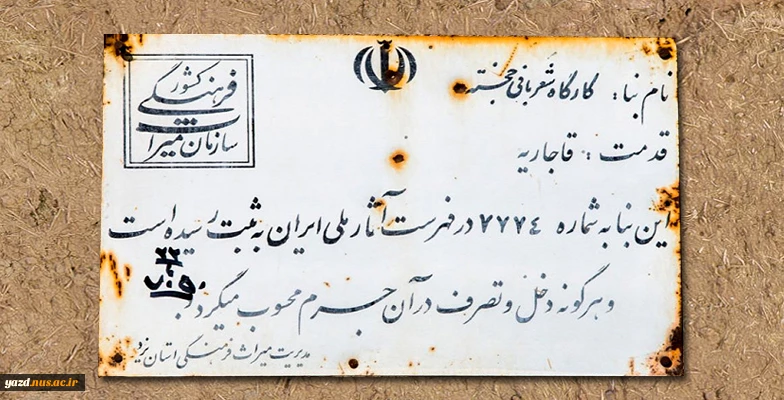 سازمان میراث فرهنگی کشور
نام بنا: کارگاه شعربافی خجسته
قدمت: قاجاریه
این بنا به شماره ۷۷۷٤ در فهرست آثار ملی ایران به ثبت رسیده است
و هرگونه دخل و تصرف در آن جرم محسوب میگردد.
مدیریت میراث فرهنگی استان یزد
yazd.nus.ac.ir